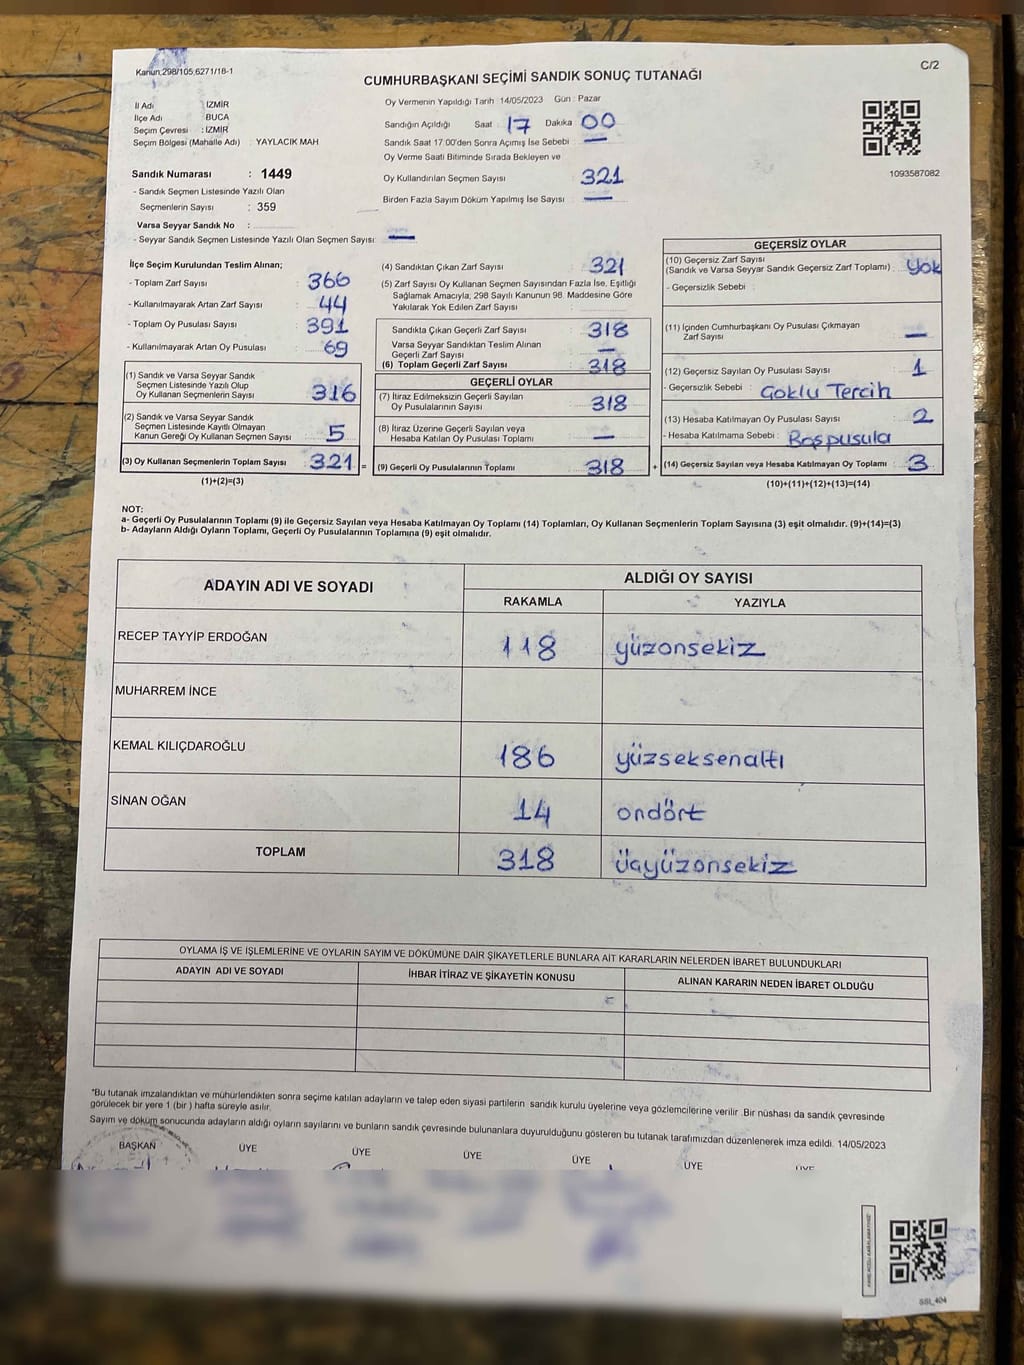 Kanun;298/105,6271/18-1
C/2
CUMHURBAŞKANI SEÇİMİ SANDIK SONUÇ TUTANAĞI
İl Adı : İZMİR
İlçe Adı : BUCA
Seçim Çevresi : İZMİR
Seçim Bölgesi (Mahalle Adı) : YAYLACIK MAH
Oy Vermenin Yapıldığı Tarih 14/05/2023 Gün : Pazar
Sandığın Açıldığı Saat 17 Dakika 00
Sandık Saat 17:00'den Sonra Açımış İse Sebebi —
Oy Verme Saati Bitiminde Sırada Bekleyen ve
Oy Kullandırılan Seçmen Sayısı 321
Birden Fazla Sayım Döküm Yapılmış İse Sayısı —
1093587082
Sandık Numarası : 1449
- Sandık Seçmen Listesinde Yazılı Olan
Seçmenlerin Sayısı : 359
Varsa Seyyar Sandık No :
- Seyyar Sandık Seçmen Listesinde Yazılı Olan Seçmen Sayısı: —
İlçe Seçim Kurulundan Teslim Alınan;
- Toplam Zarf Sayısı : 366
- Kullanılmayarak Artan Zarf Sayısı : 44
- Toplam Oy Pusulası Sayısı : 391
- Kullanılmayarak Artan Oy Pusulası : 69
(1) Sandık ve Varsa Seyyar Sandık
Seçmen Listesinde Yazılı Olup
Oy Kullanan Seçmenlerin Sayısı : 316
(2) Sandık ve Varsa Seyyar Sandık
Seçmen Listesinde Kayıtlı Olmayan
Kanun Gereği Oy Kullanan Seçmen Sayısı : 5
(3) Oy Kullanan Seçmenlerin Toplam Sayısı : 321 =
(1)+(2)=(3)
(4) Sandıktan Çıkan Zarf Sayısı : 321
(5) Zarf Sayısı Oy Kullanan Seçmen Sayısından Fazla İse, Eşitliği
Sağlamak Amacıyla, 298 Sayılı Kanunun 98. Maddesine Göre
Yakılarak Yok Edilen Zarf Sayısı :
Sandıkta Çıkan Geçerli Zarf Sayısı : 318
Varsa Seyyar Sandıktan Teslim Alınan
Geçerli Zarf Sayısı : —
(6) Toplam Geçerli Zarf Sayısı : 318
GEÇERLİ OYLAR
(7) İtiraz Edilmeksizin Geçerli Sayılan
Oy Pusulalarının Sayısı : 318
(8) İtiraz Üzerine Geçerli Sayılan veya
Hesaba Katılan Oy Pusulası Toplamı : —
(9) Geçerli Oy Pusulalarının Toplamı : 318 +
GEÇERSİZ OYLAR
(10) Geçersiz Zarf Sayısı
(Sandık ve Varsa Seyyar Sandık Geçersiz Zarf Toplamı) : Yok
- Geçersizlik Sebebi :
(11) İçinden Cumhurbaşkanı Oy Pusulası Çıkmayan
Zarf Sayısı : —
(12) Geçersiz Sayılan Oy Pusulası Sayısı : 1
- Geçersizlik Sebebi : Çoklu Tercih
(13) Hesaba Katılmayan Oy Pusulası Sayısı : 2
- Hesaba Katılmama Sebebi : Boş pusula
(14) Geçersiz Sayılan veya Hesaba Katılmayan Oy Toplamı : 3
(10)+(11)+(12)+(13)=(14)
NOT:
a- Geçerli Oy Pusulalarının Toplamı (9) ile Geçersiz Sayılan veya Hesaba Katılmayan Oy Toplamı (14) Toplamları, Oy Kullanan Seçmenlerin Toplam Sayısına (3) eşit olmalıdır. (9)+(14)=(3)
b- Adayların Aldığı Oyların Toplamı, Geçerli Oy Pusulalarının Toplamına (9) eşit olmalıdır.
ADAYIN ADI VE SOYADI
ALDIĞI OY SAYISI
RAKAMLA YAZIYLA
RECEP TAYYİP ERDOĞAN 118 yüzonsekiz
MUHARREM İNCE
KEMAL KILIÇDAROĞLU 186 yüzseksenaltı
SİNAN OĞAN 14 ondört
TOPLAM 318 üçyüzonsekiz
OYLAMA İŞ VE İŞLEMLERİNE VE OYLARIN SAYIM VE DÖKÜMÜNE DAİR ŞİKAYETLERLE BUNLARA AİT KARARLARIN NELERDEN İBARET BULUNDUKLARI
ADAYIN ADI VE SOYADI İHBAR İTİRAZ VE ŞİKAYETİN KONUSU ALINAN KARARIN NEDEN İBARET OLDUĞU
*Bu tutanak imzalandıktan ve mühürlendikten sonra seçime katılan adayların ve talep eden siyasi partilerin sandık kurulu üyelerine veya gözlemcilerine verilir. Bir nüshası da sandık çevresinde
görülecek bir yere 1 (bir ) hafta süreyle asılır.
Sayım ve döküm sonucunda adayların aldığı oyların sayılarını ve bunların sandık çevresinde bulunanlara duyurulduğunu gösteren bu tutanak tarafımızdan düzenlenerek imza edildi. 14/05/2023
BAŞKAN ÜYE ÜYE ÜYE ÜYE ÜYE ÜYE
SSI_404